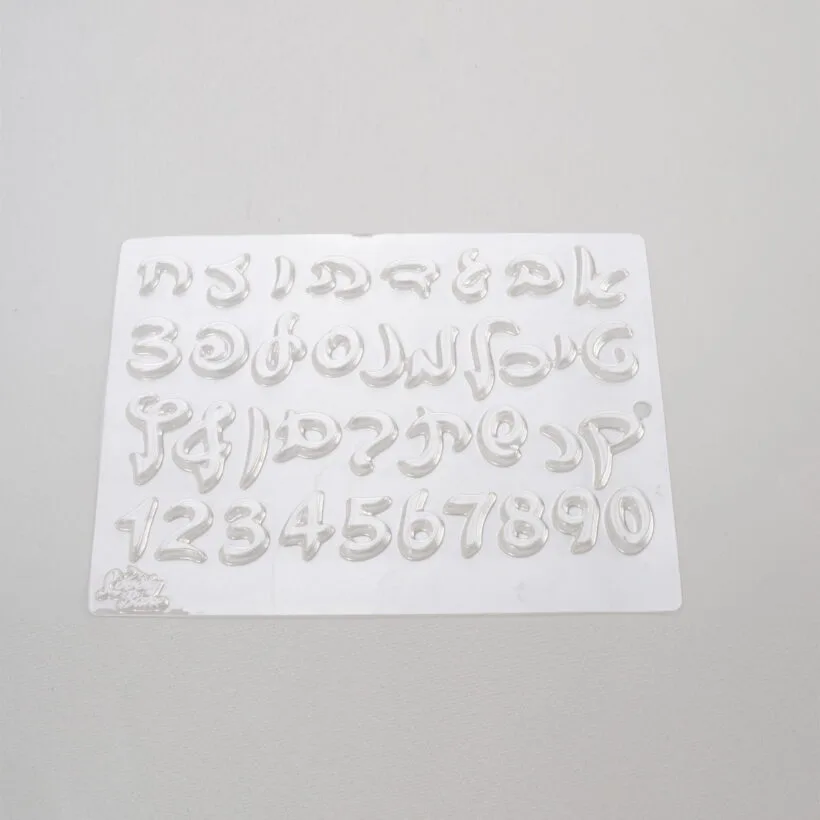 א ב ג ד ה ו ז ח
ט י כ ל מ נ ס ע פ צ
ק ר ש ת ך ם ן ף ץ
1 2 3 4 5 6 7 8 9 0